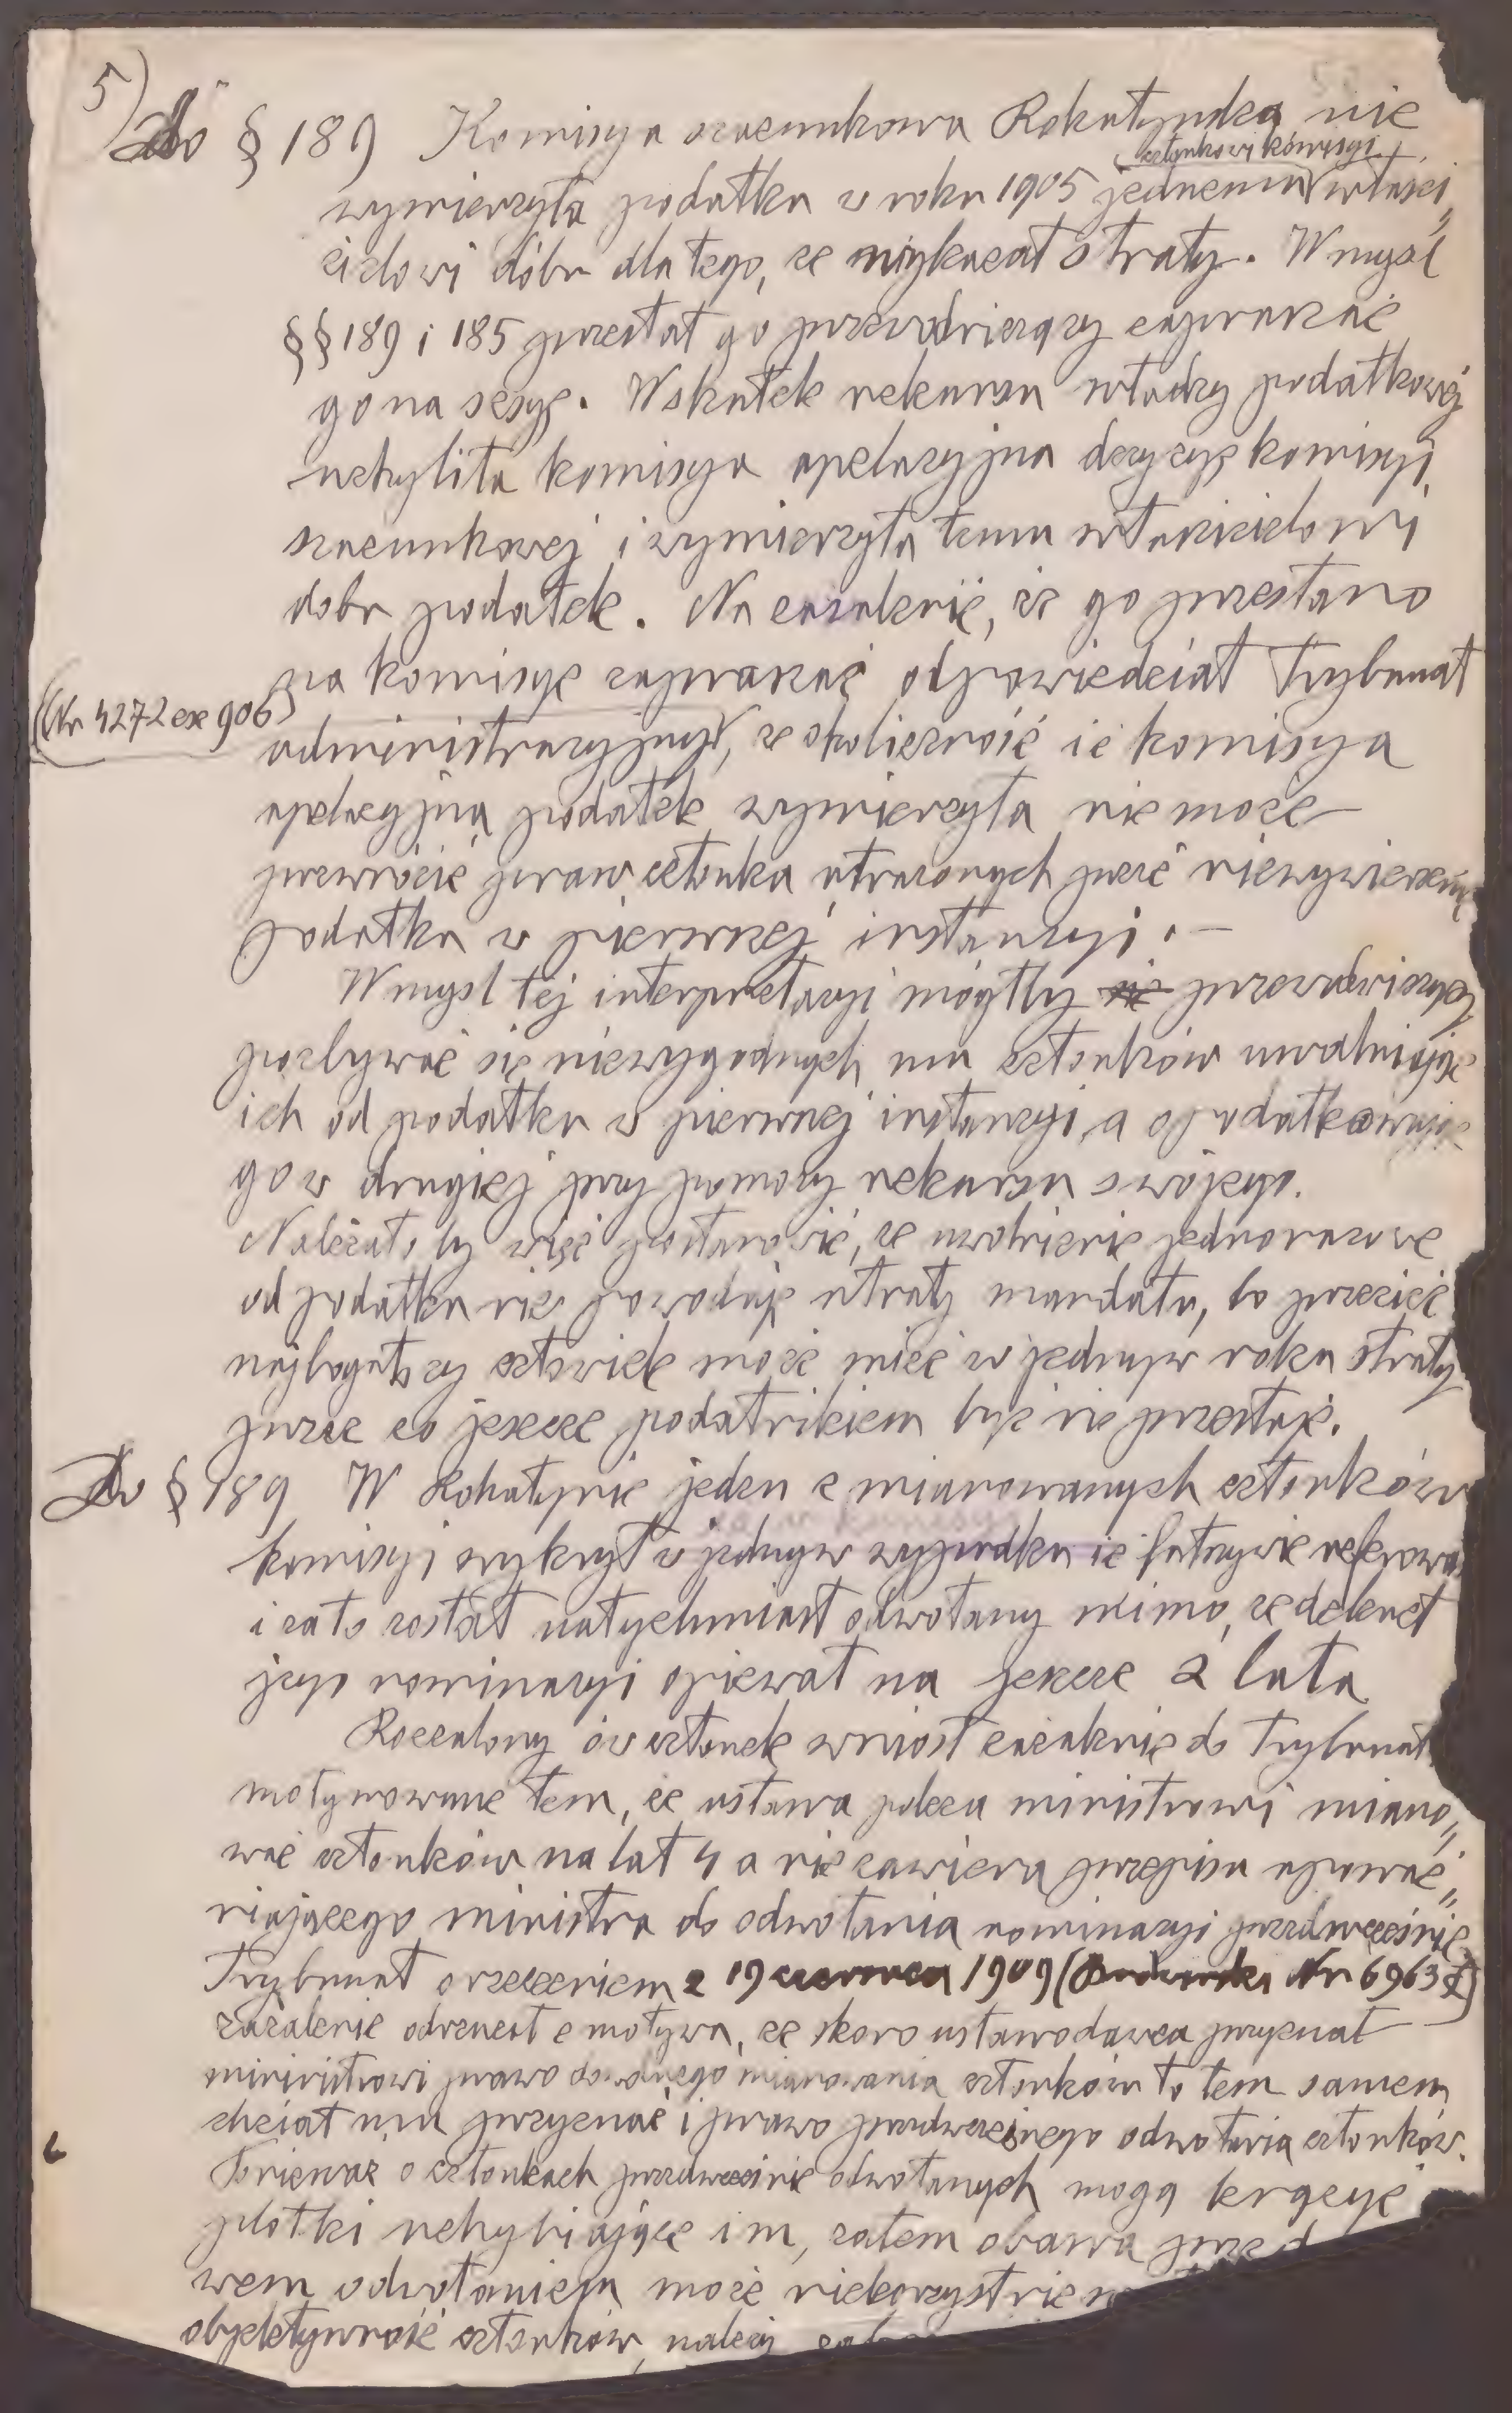 5)
Do § 189 Komisya szacunkowa Rohatyńska nie
członkowi komisyi
wymierzyła podatku w roku 1905 jednemu właści„
cielowi dóbr dla tego, że wykazał straty. W mysl
§§ 189 i 185 przestał go przewodniczący zapraszać
go na sesyę. Wskutek rekursu władzy podatkowej
uchyliła komisya apelacyjna decyzyę komisyi
szacunkowej i wymierzyła temu właścicielowi
dobr podatek. Na zażalenie, że go przestano
na komisyę zapraszać odpowiedział Trybunał
(Nr 4272 ex 906)
administracyjny, że okoliczność że komisya
apelacyjna podatek wymierzyła nie może
przewrócić praw członka utraconych przez niewymierzenie
podatku w pierwszej instancyi. –
W mysl tej interpretacyi mógłby się przewodniczący
pozbywać się niewygodnych mu członków uwalniając
ich od podatku w pierwszej instancyi, a opodatkowując
go w drugiej przy pomocy rekursu swojego.
Należało by więc postanowić, że uwolnienie jednorazowe
od podatku nie powoduje utraty mandatu, bo przecież
najbogatszy człowiek może mieć w jednym roku straty
przez co jeszcze podatnikiem być nie przestaje.
Do § 189 W Rohatynie jeden z mianowanych członków
komisyi wykrył w jednym wypadku że fałszywie referowa
i za to został natychmiast odwołany mimo, że dekret
jego nominacyi opiewał na jeszcze 2 lata
Rozżalony ów członek wniósł zażalenie do Trybunał
motywowane tem, że ustawa poleca ministrowi miano„
wać członków na lat 4 a nie zawiera przepisu upoważ„
niającego ministra do odwołania nominacyi przedwcześnie
Trybunał orzeczeniem z 19 czerwca 1909 (Budwiński Nr 6963 F)
zażalenie odrzucił z motywu, że skoro ustawodawca przyznał
ministrowi prawo dowolnego mianowania członków to tem samem
chciał mu przyznać i prawo przedwczesnego odwołania członków.
Ponieważ o członkach przedwcześnie odwołanych mogą krążyć
plotki uchybiające im, zatem obawa przed
wem odwołaniem może niekorzystnie
objektywność członków, należy